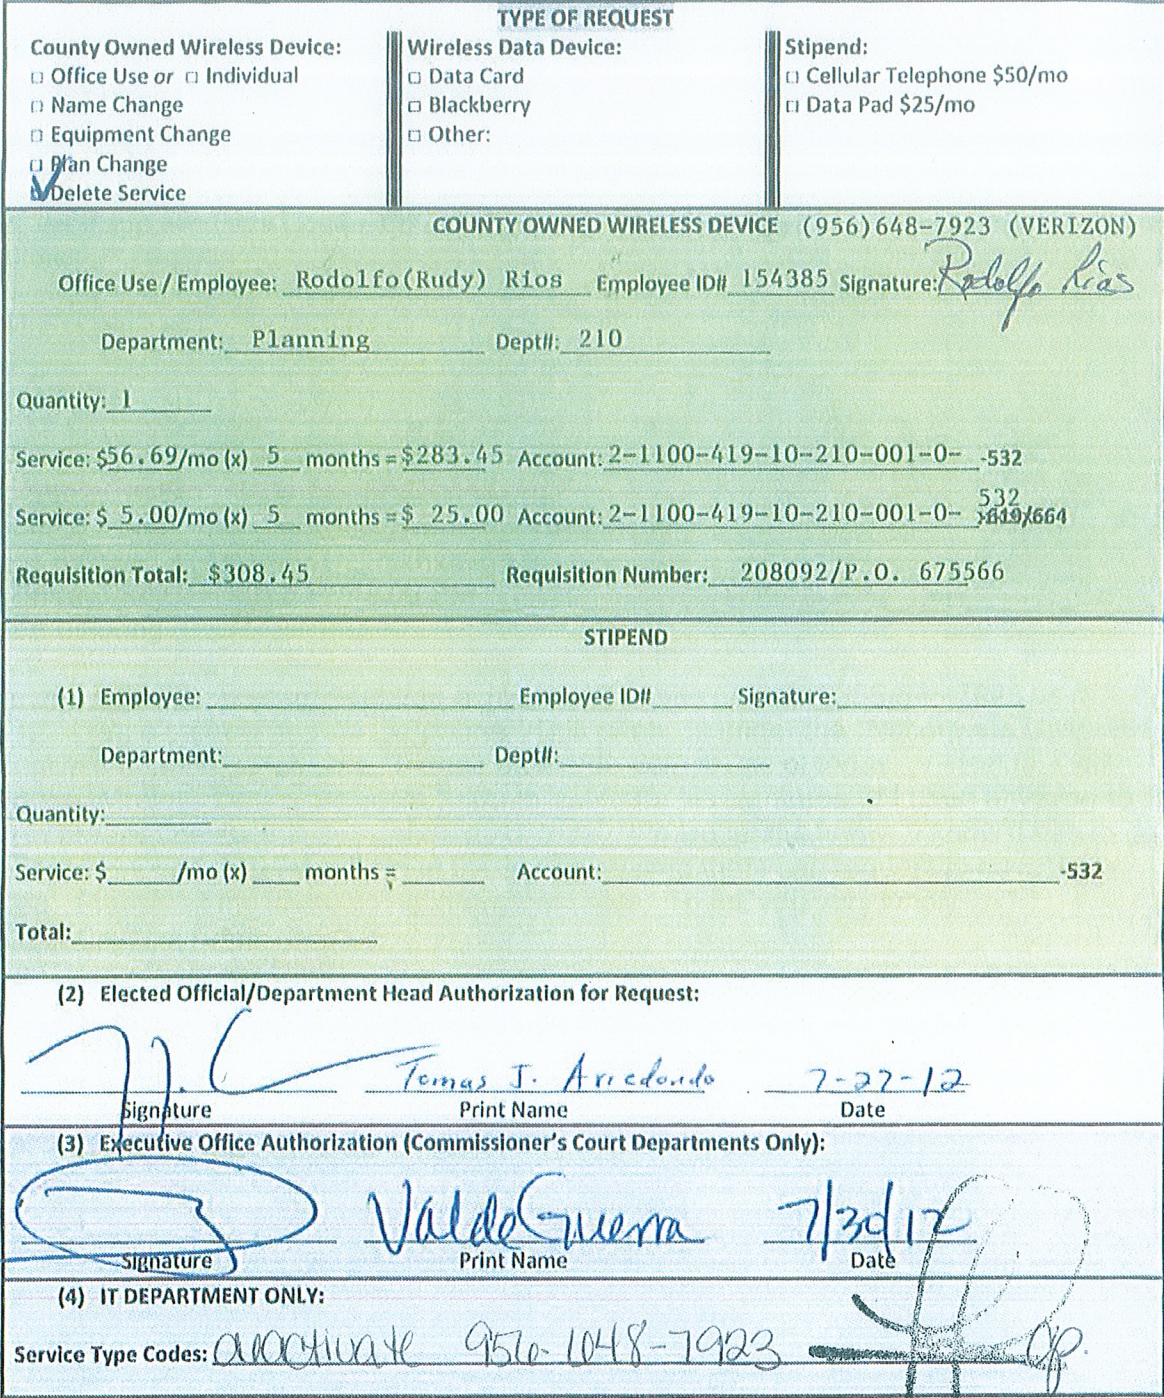 TYPE OF REQUEST
County Owned Wireless Device: Wireless Data Device: Stipend:
□ Office Use or □ Individual □ Data Card □ Cellular Telephone $50/mo
□ Name Change □ Blackberry □ Data Pad $25/mo
□ Equipment Change □ Other:
□ Plan Change
☑ Delete Service
COUNTY OWNED WIRELESS DEVICE (956)648-7923 (VERIZON)
Office Use / Employee: Rodolfo(Rudy) Rios Employee ID# 154385 Signature: Rodolfo Rios
Department: Planning Dept#: 210
Quantity: 1
Service: $56.69/mo (x) 5 months = $283.45 Account: 2-1100-419-10-210-001-0- -532
532
Service: $ 5.00/mo (x) 5 months = $ 25.00 Account: 2-1100-419-10-210-001-0- -619/664
Requisition Total: $308.45 Requisition Number: 208092/P.O. 675566
STIPEND
(1) Employee: Employee ID# Signature:
Department: Dept#:
Quantity:
Service: $ /mo (x) months = Account: -532
Total:
(2) Elected Official/Department Head Authorization for Request:
Tomas J. Arredondo 7-27-12
Signature Print Name Date
(3) Executive Office Authorization (Commissioner's Court Departments Only):
Valde Guerra 7/30/12
Signature Print Name Date
(4) IT DEPARTMENT ONLY:
Service Type Codes: 956-648-7923